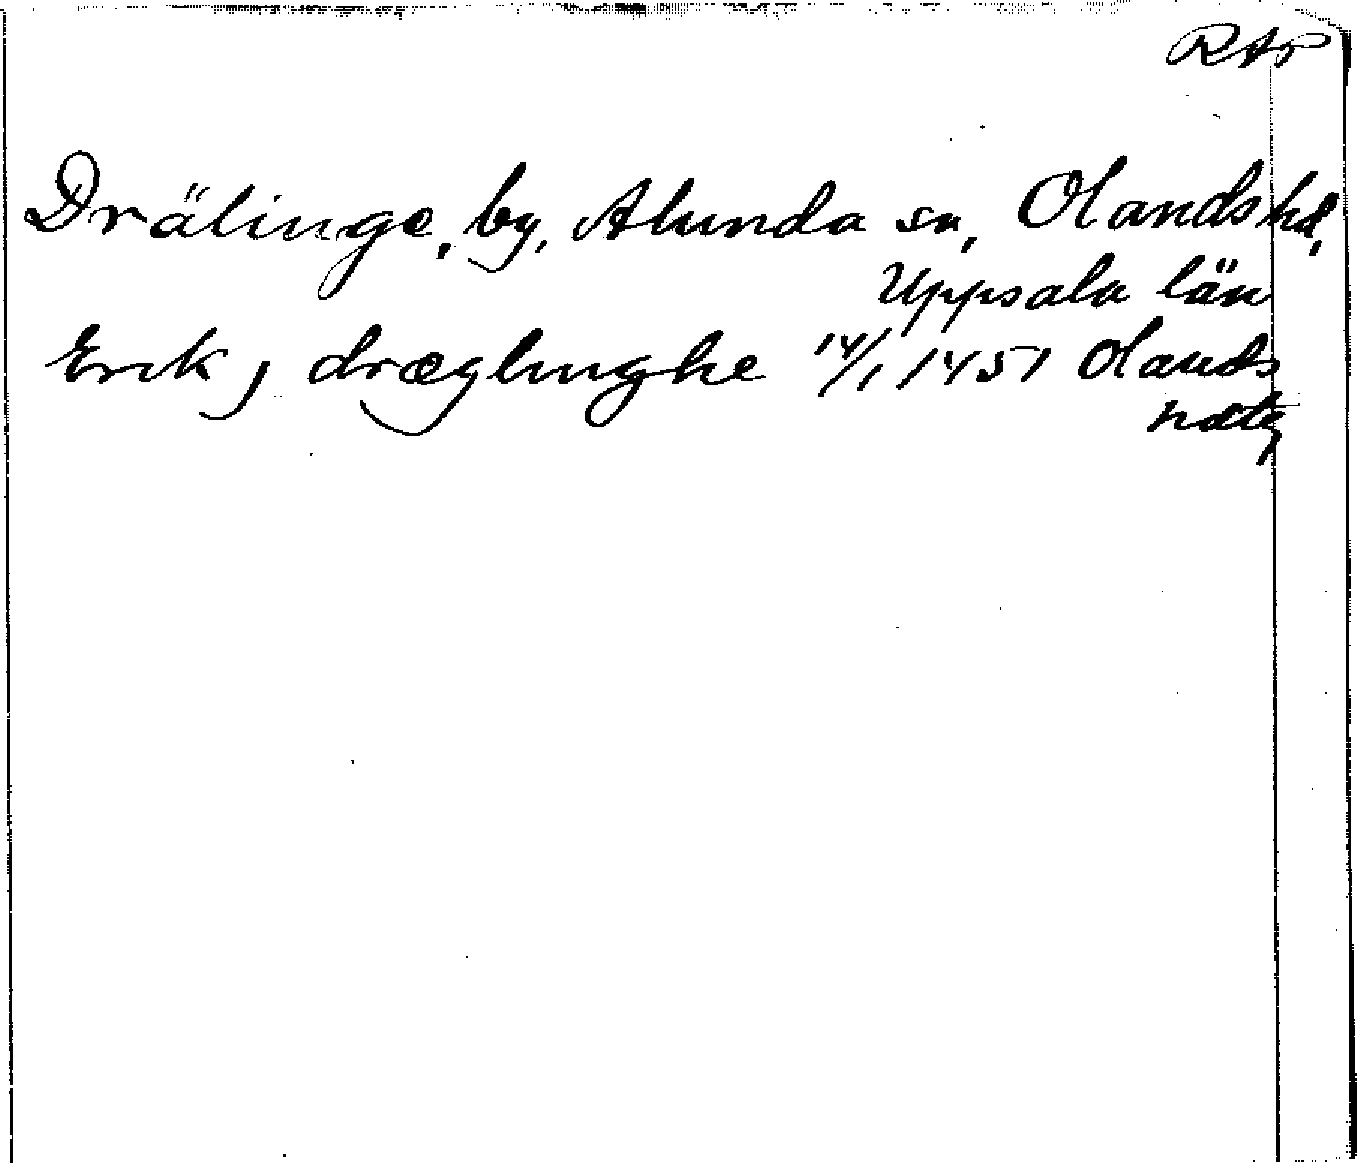 RAp
Drälinge, by, Alunda sn, Olands hd,
Uppsala län
Erik j dræglinghe 14/1 1451 Olands